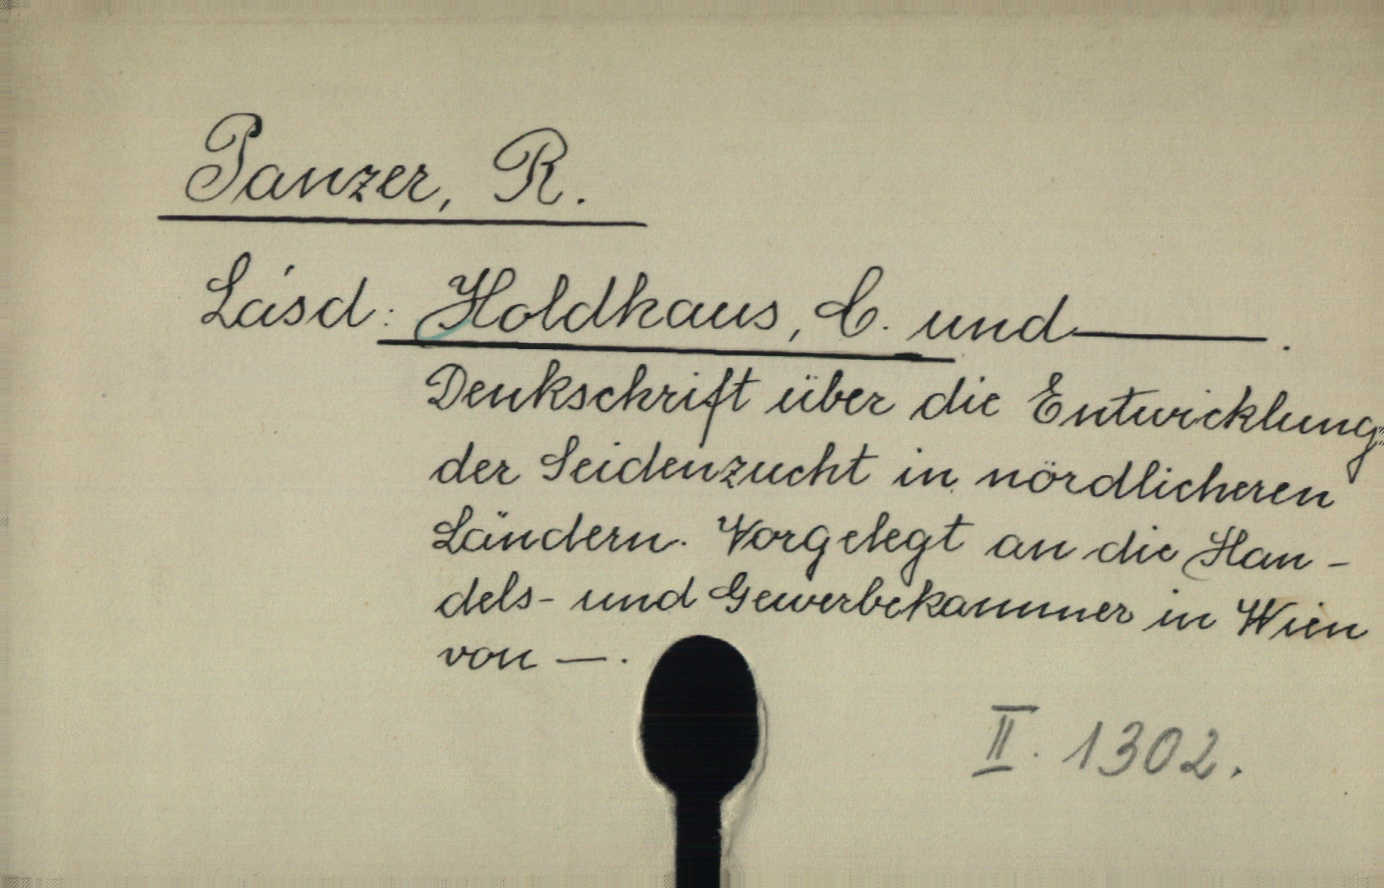 Panzer, R.
Lásd: Holdhaus, C. und ——.
Denkschrift über die Entwicklung
der Seidenzucht in nördlicheren
Ländern. Vorgelegt an die Han-
dels- und Gewerbekammer in Wien
von —.
II. 1302.